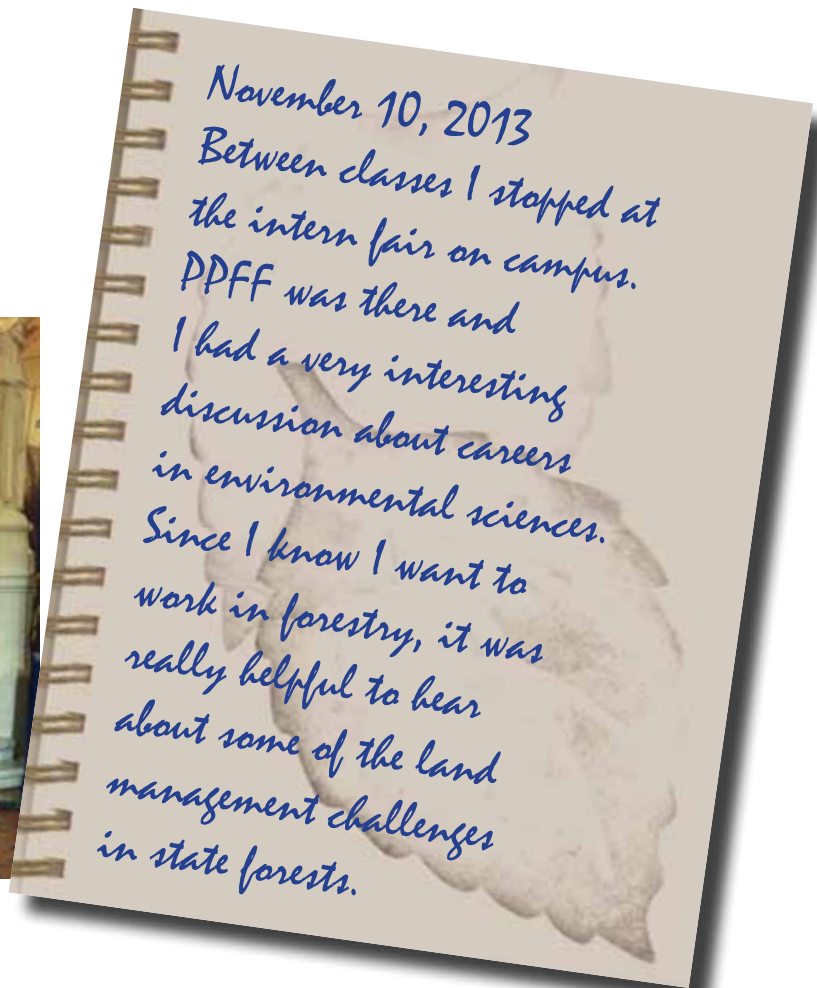 November 10, 2013
Between classes I stopped at
the intern fair on campus.
PPFF was there and
I had a very interesting
discussion about careers
in environmental sciences.
Since I know I want to
work in forestry, it was
really helpful to hear
about some of the land
management challenges
in state forests.